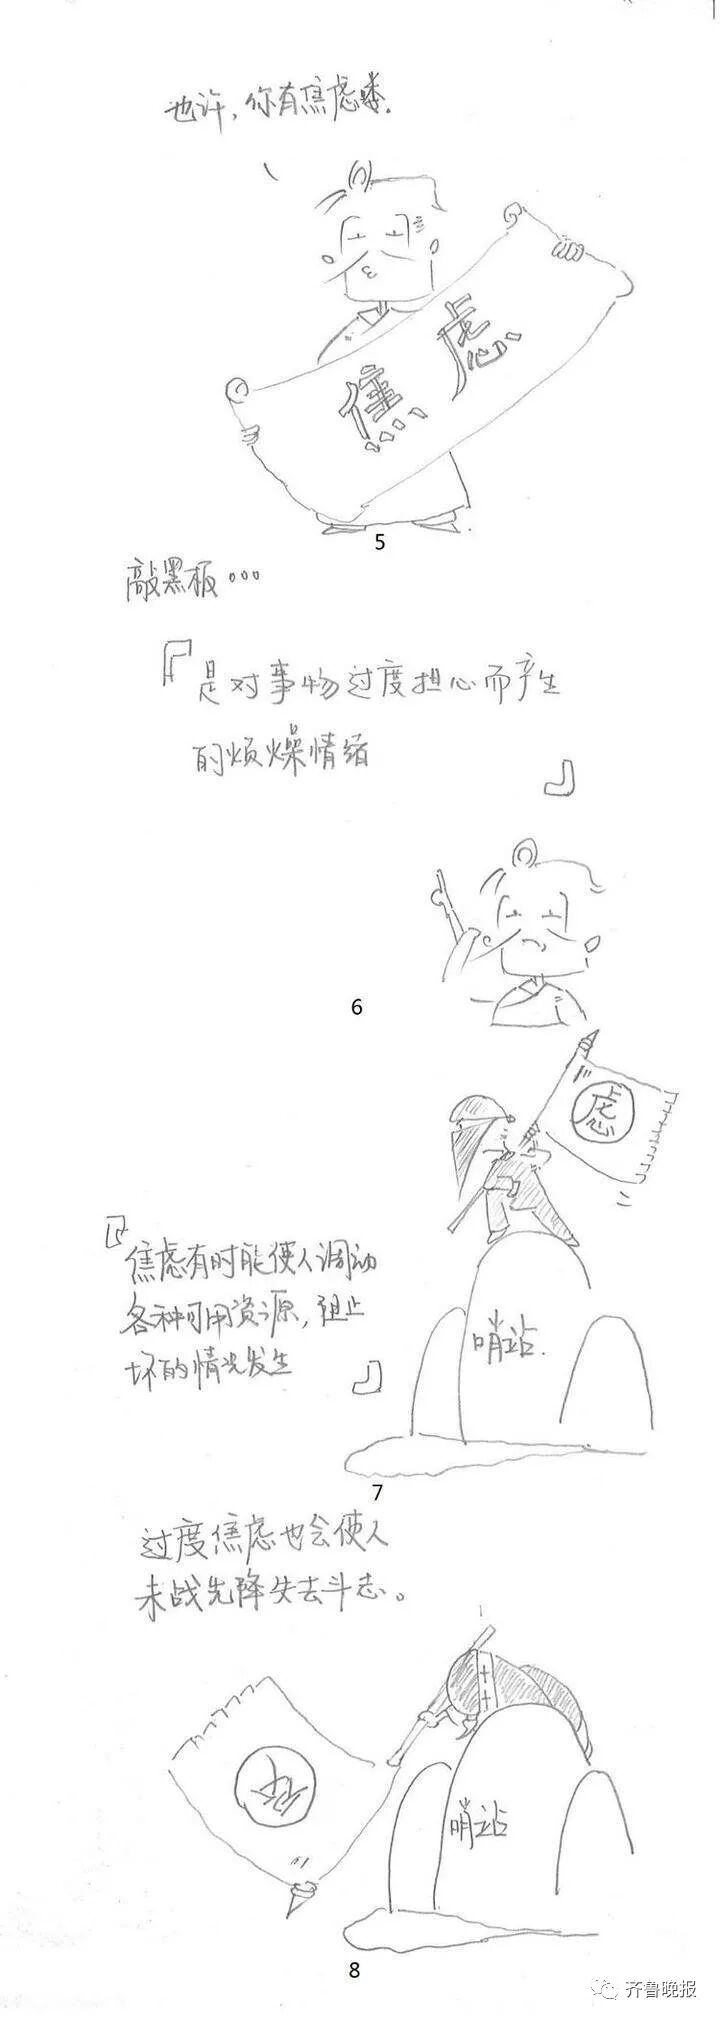 也许，你有焦虑喽.
焦虑
5
敲黑板...
『是对事物过度担心而产生
的烦燥情绪
』
6
虑
『焦虑有时能使人调动
各种可用资源，阻止
坏的情况发生
』
哨站.
7
过度焦虑也会使人
未战先降失去斗志。
哨站
8
齐鲁晚报